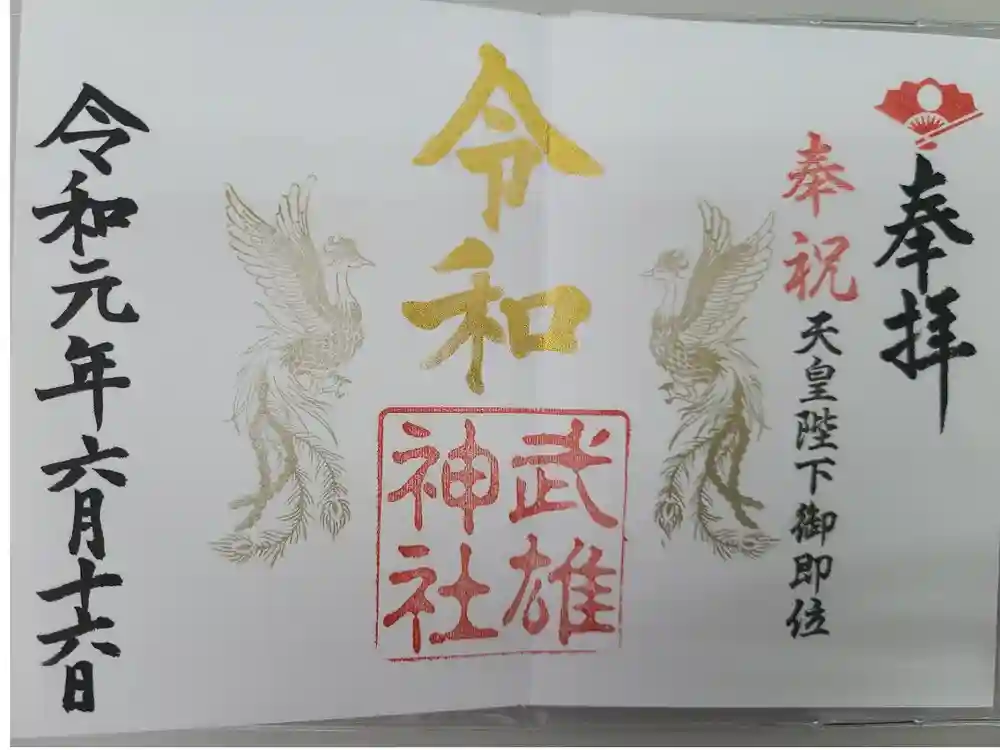 奉拝
奉祝天皇陛下御即位
令和
武雄
神社
令和元年六月十六日